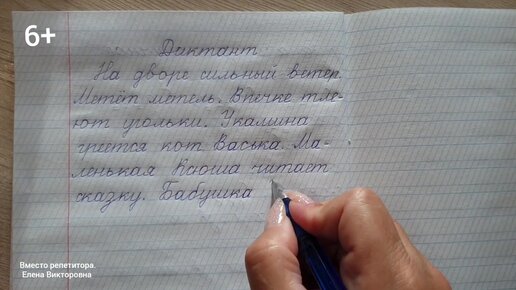 6+
Диктант.
На дворе сильный ветер.
Метёт метель. В печке тле-
ют угольки. У камина
греется кот Васька. Ма-
ленькая Ксюша читает
сказку. Бабушка
Вместо репетитора.
Елена Викторовна